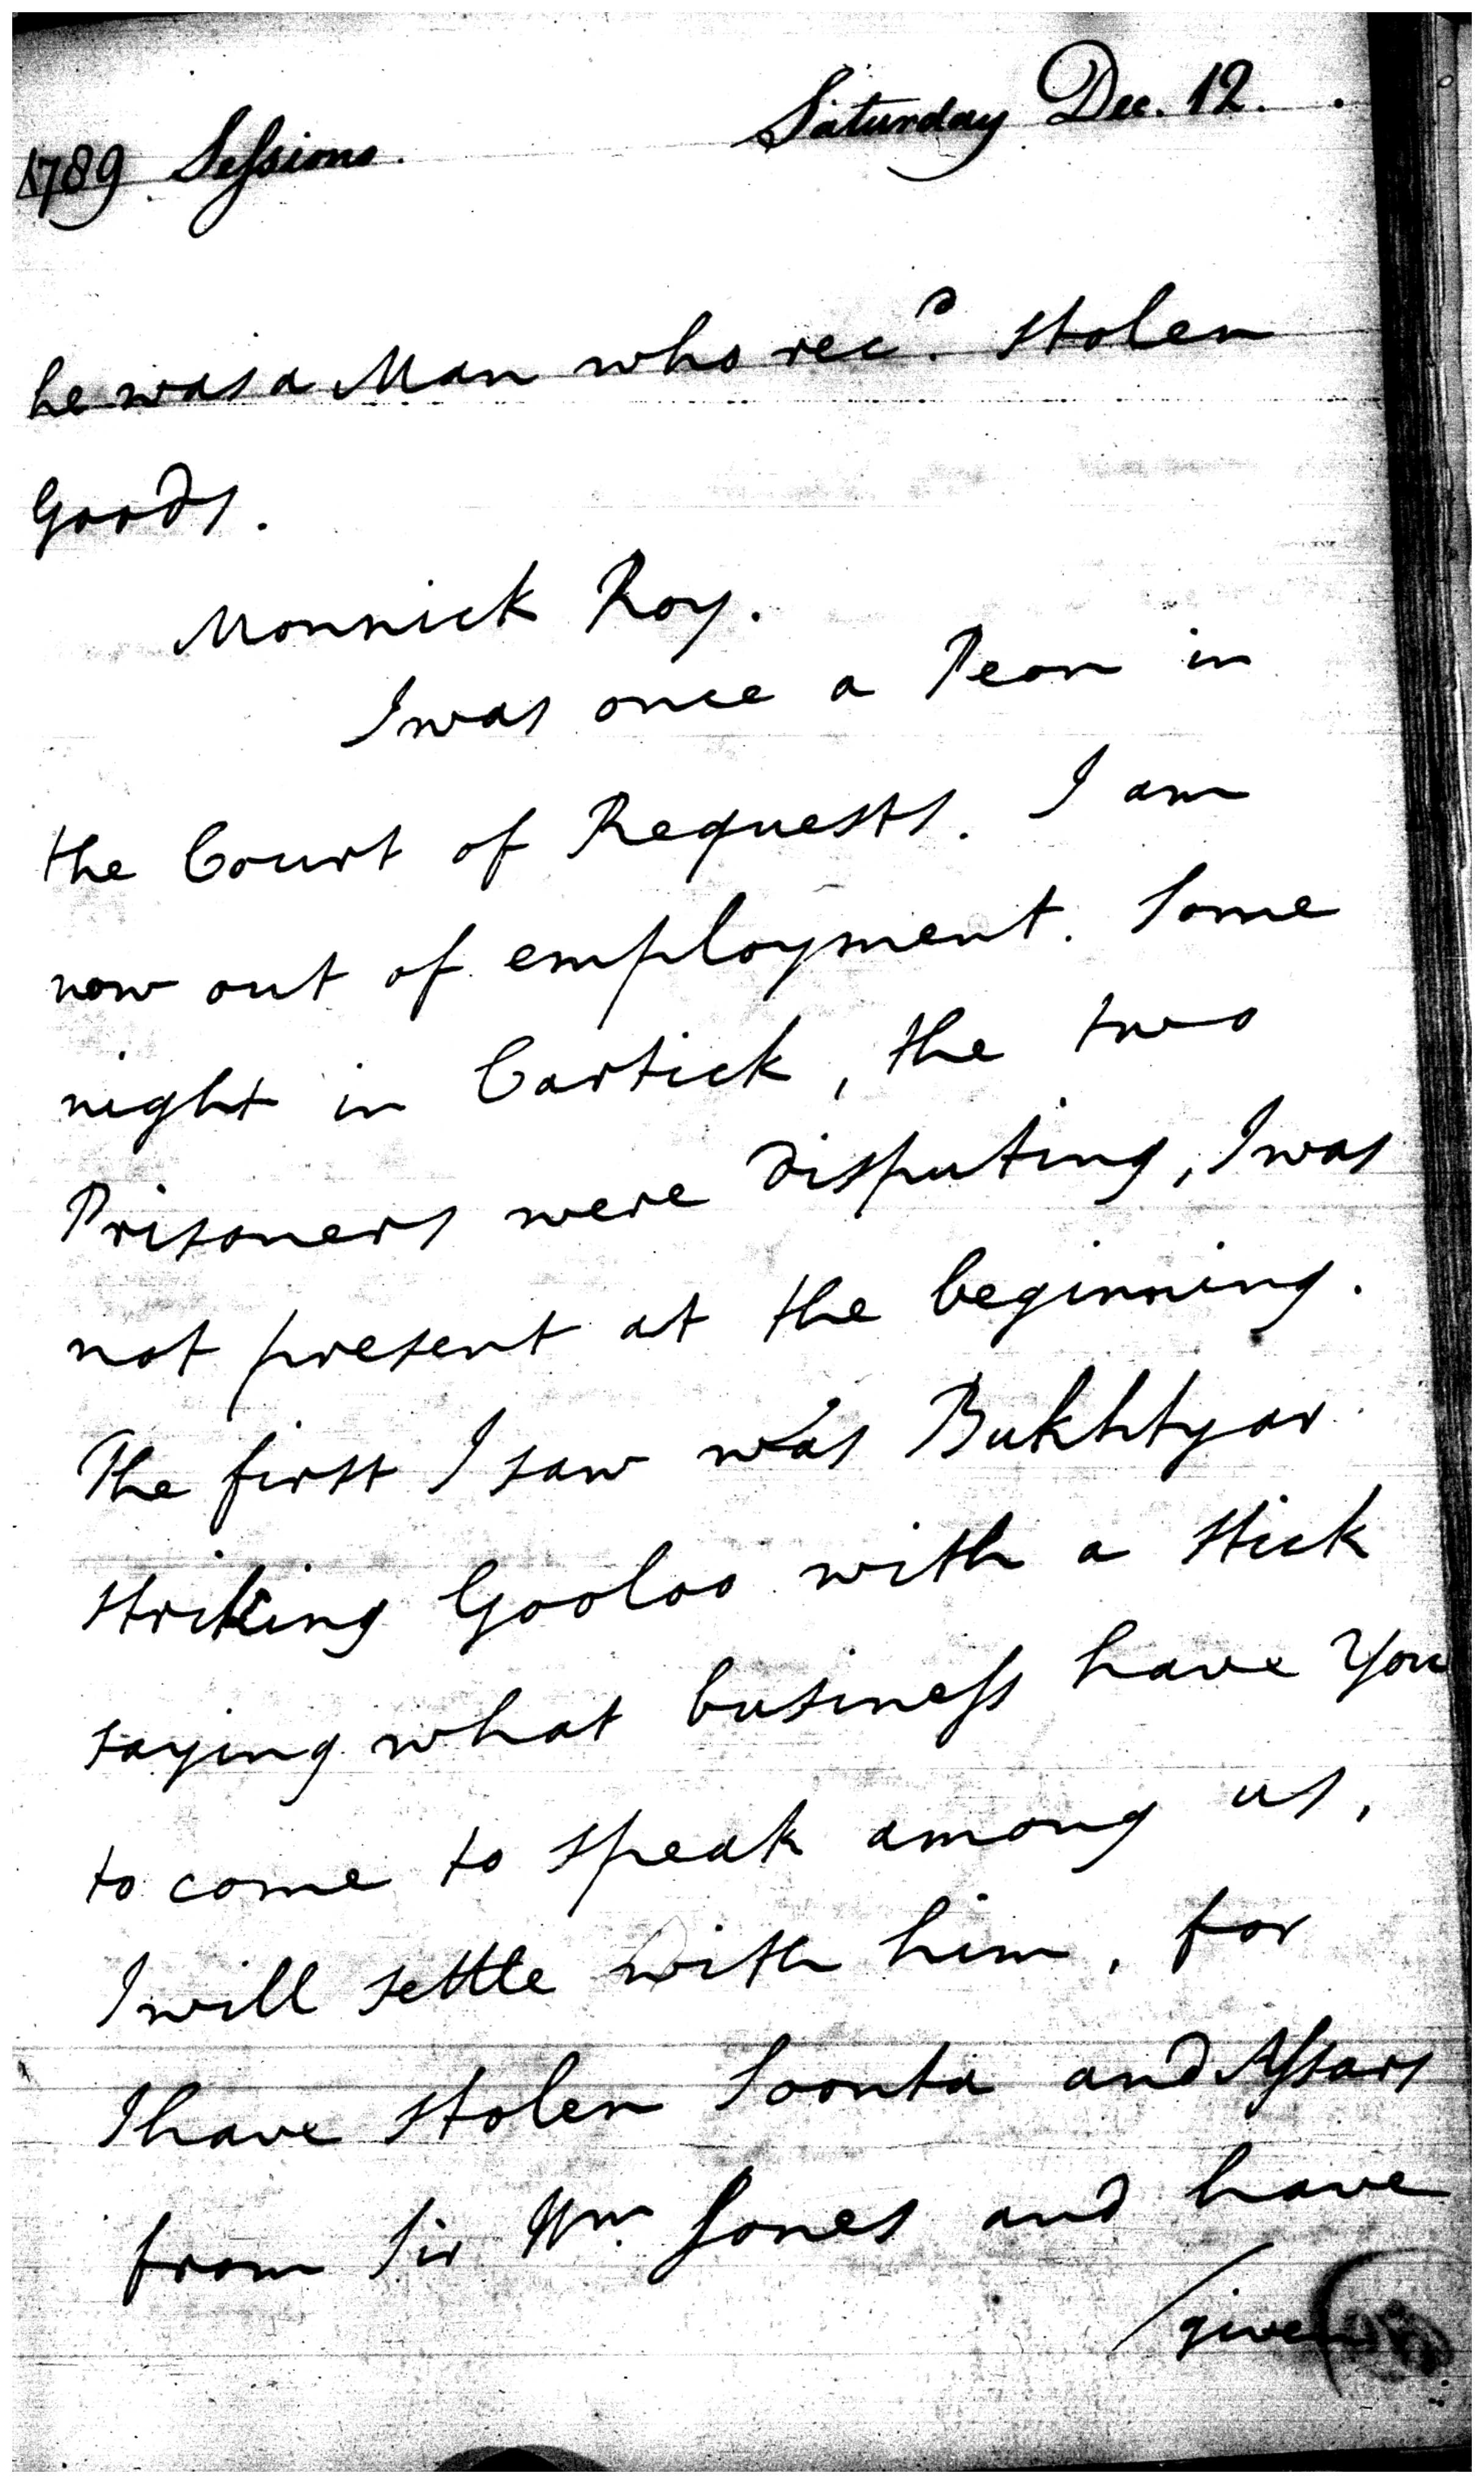 1789 Sessions. Saturday Dec. 12.
he was a Man who rec.d stolen
Goods.
Monnick Roy.
I was once a Peon in
the Court of Requests. I am
now out of employment. Some
night in Cartick, the two
Prisoners were disputing, I was
not present at the beginning.
The first I saw was Bukhtyar
striking Gooloo with a stick
saying what business have You
to come to speak among us,
I will settle with him, for
I have stolen Soonta and Assars
from Sir Wm. Jones and have
/given